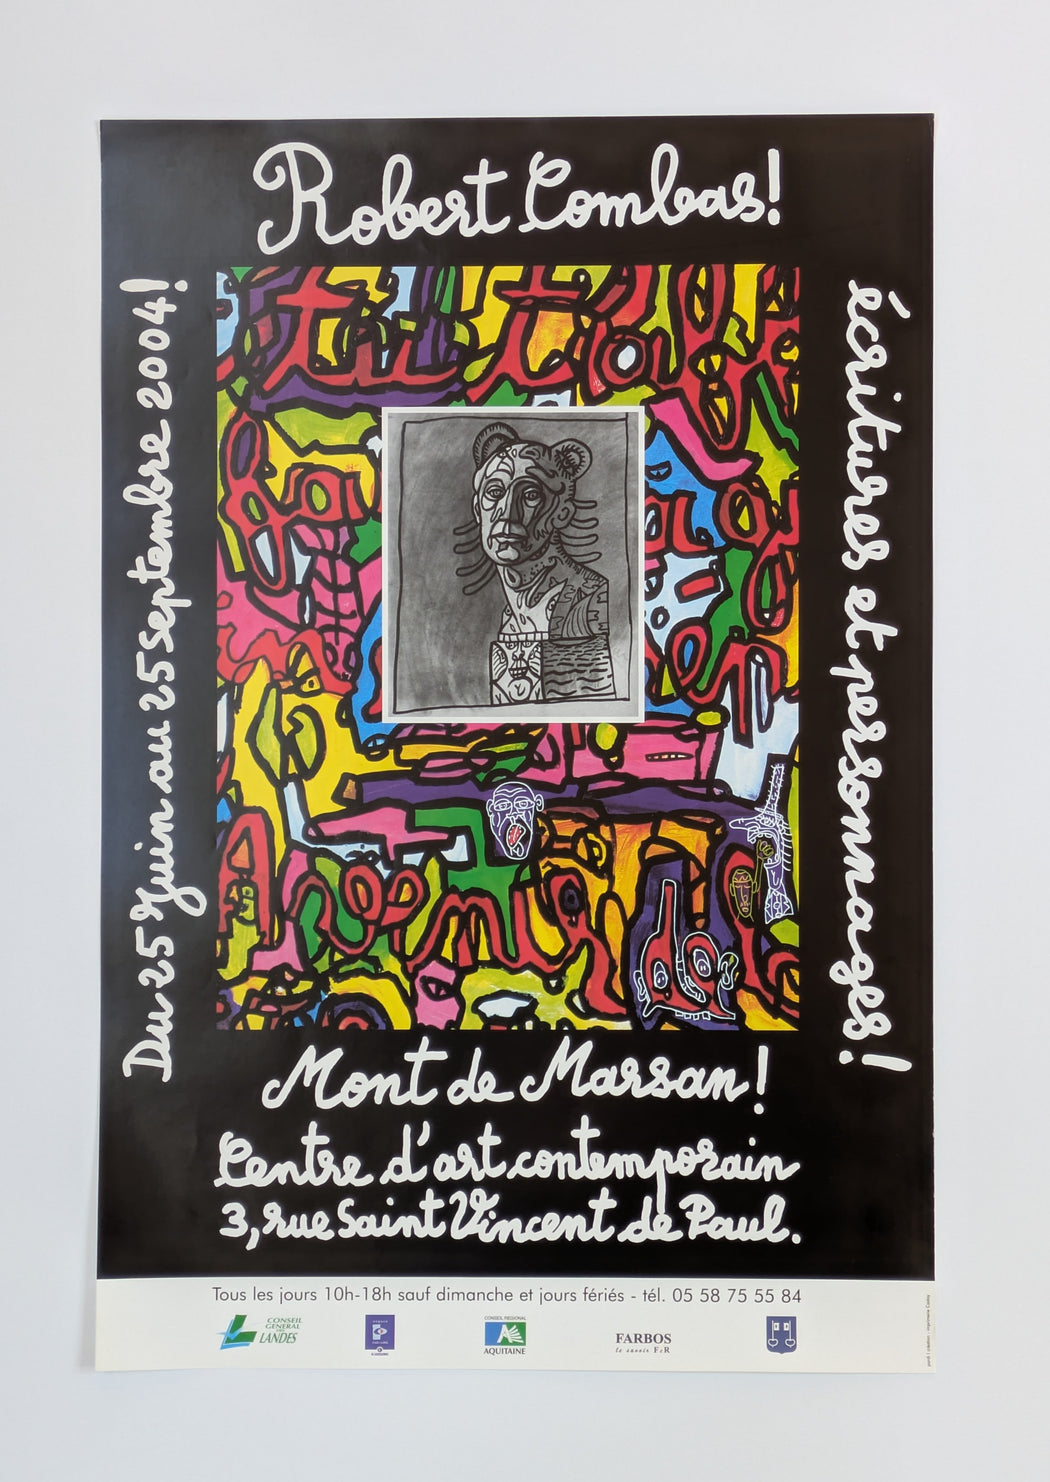 Robert Combas!
Du 25 Juin au 25 Septembre 2004!
écritures et personnages!
Mont de Marsan!
Centre d'art contemporain
3, rue Saint Vincent de Paul.
Tous les jours 10h-18h sauf dimanche et jours fériés - tél. 05 58 75 55 84
CONSEIL
GENERAL
DES
LANDES
CONSEIL REGIONAL
AQUITAINE
FARBOS
le savoir F&R